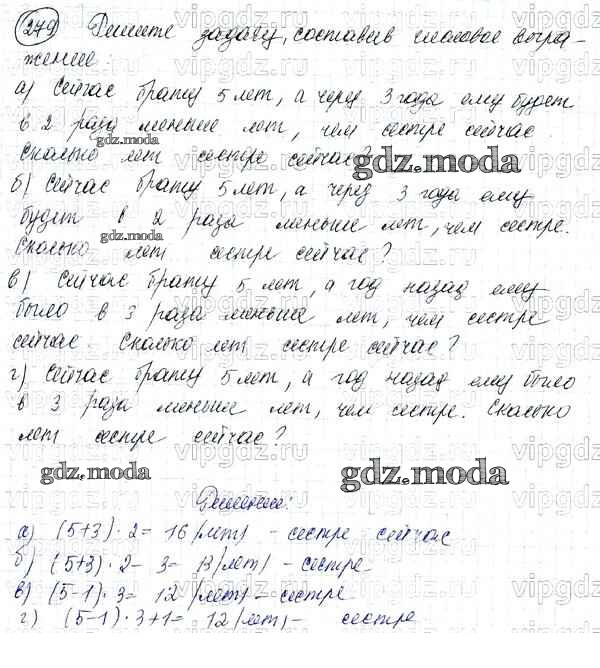 279 Решите задачу, составив числовое выра-
жение:
а) Сейчас брату 5 лет, а через 3 года ему будет
в 2 раза меньше лет, чем сестре сейчас.
gdz.moda
Сколько лет сестре сейчас?
gdz.moda
б) Сейчас брату 5 лет, а через 3 года ему
будет в 2 раза меньше лет, чем сестре.
gdz.moda
Сколько лет сестре сейчас?
в) Сейчас брату 5 лет, а год назад ему
было в 3 раза меньше лет, чем сестре
сейчас. Сколько лет сестре сейчас?
г) Сейчас брату 5 лет, а год назад ему было
в 3 раза меньше лет, чем сестре. Сколько
лет сестре сейчас?
gdz.moda
gdz.moda
Решение:
а) (5+3)·2= 16 (лет) - сестре сейчас
б) (5+3)·2-3= 13 (лет) - сестре
в) (5-1)·3= 12 (лет) - сестре
г) (5-1)·3+1= 12 (лет) - сестре